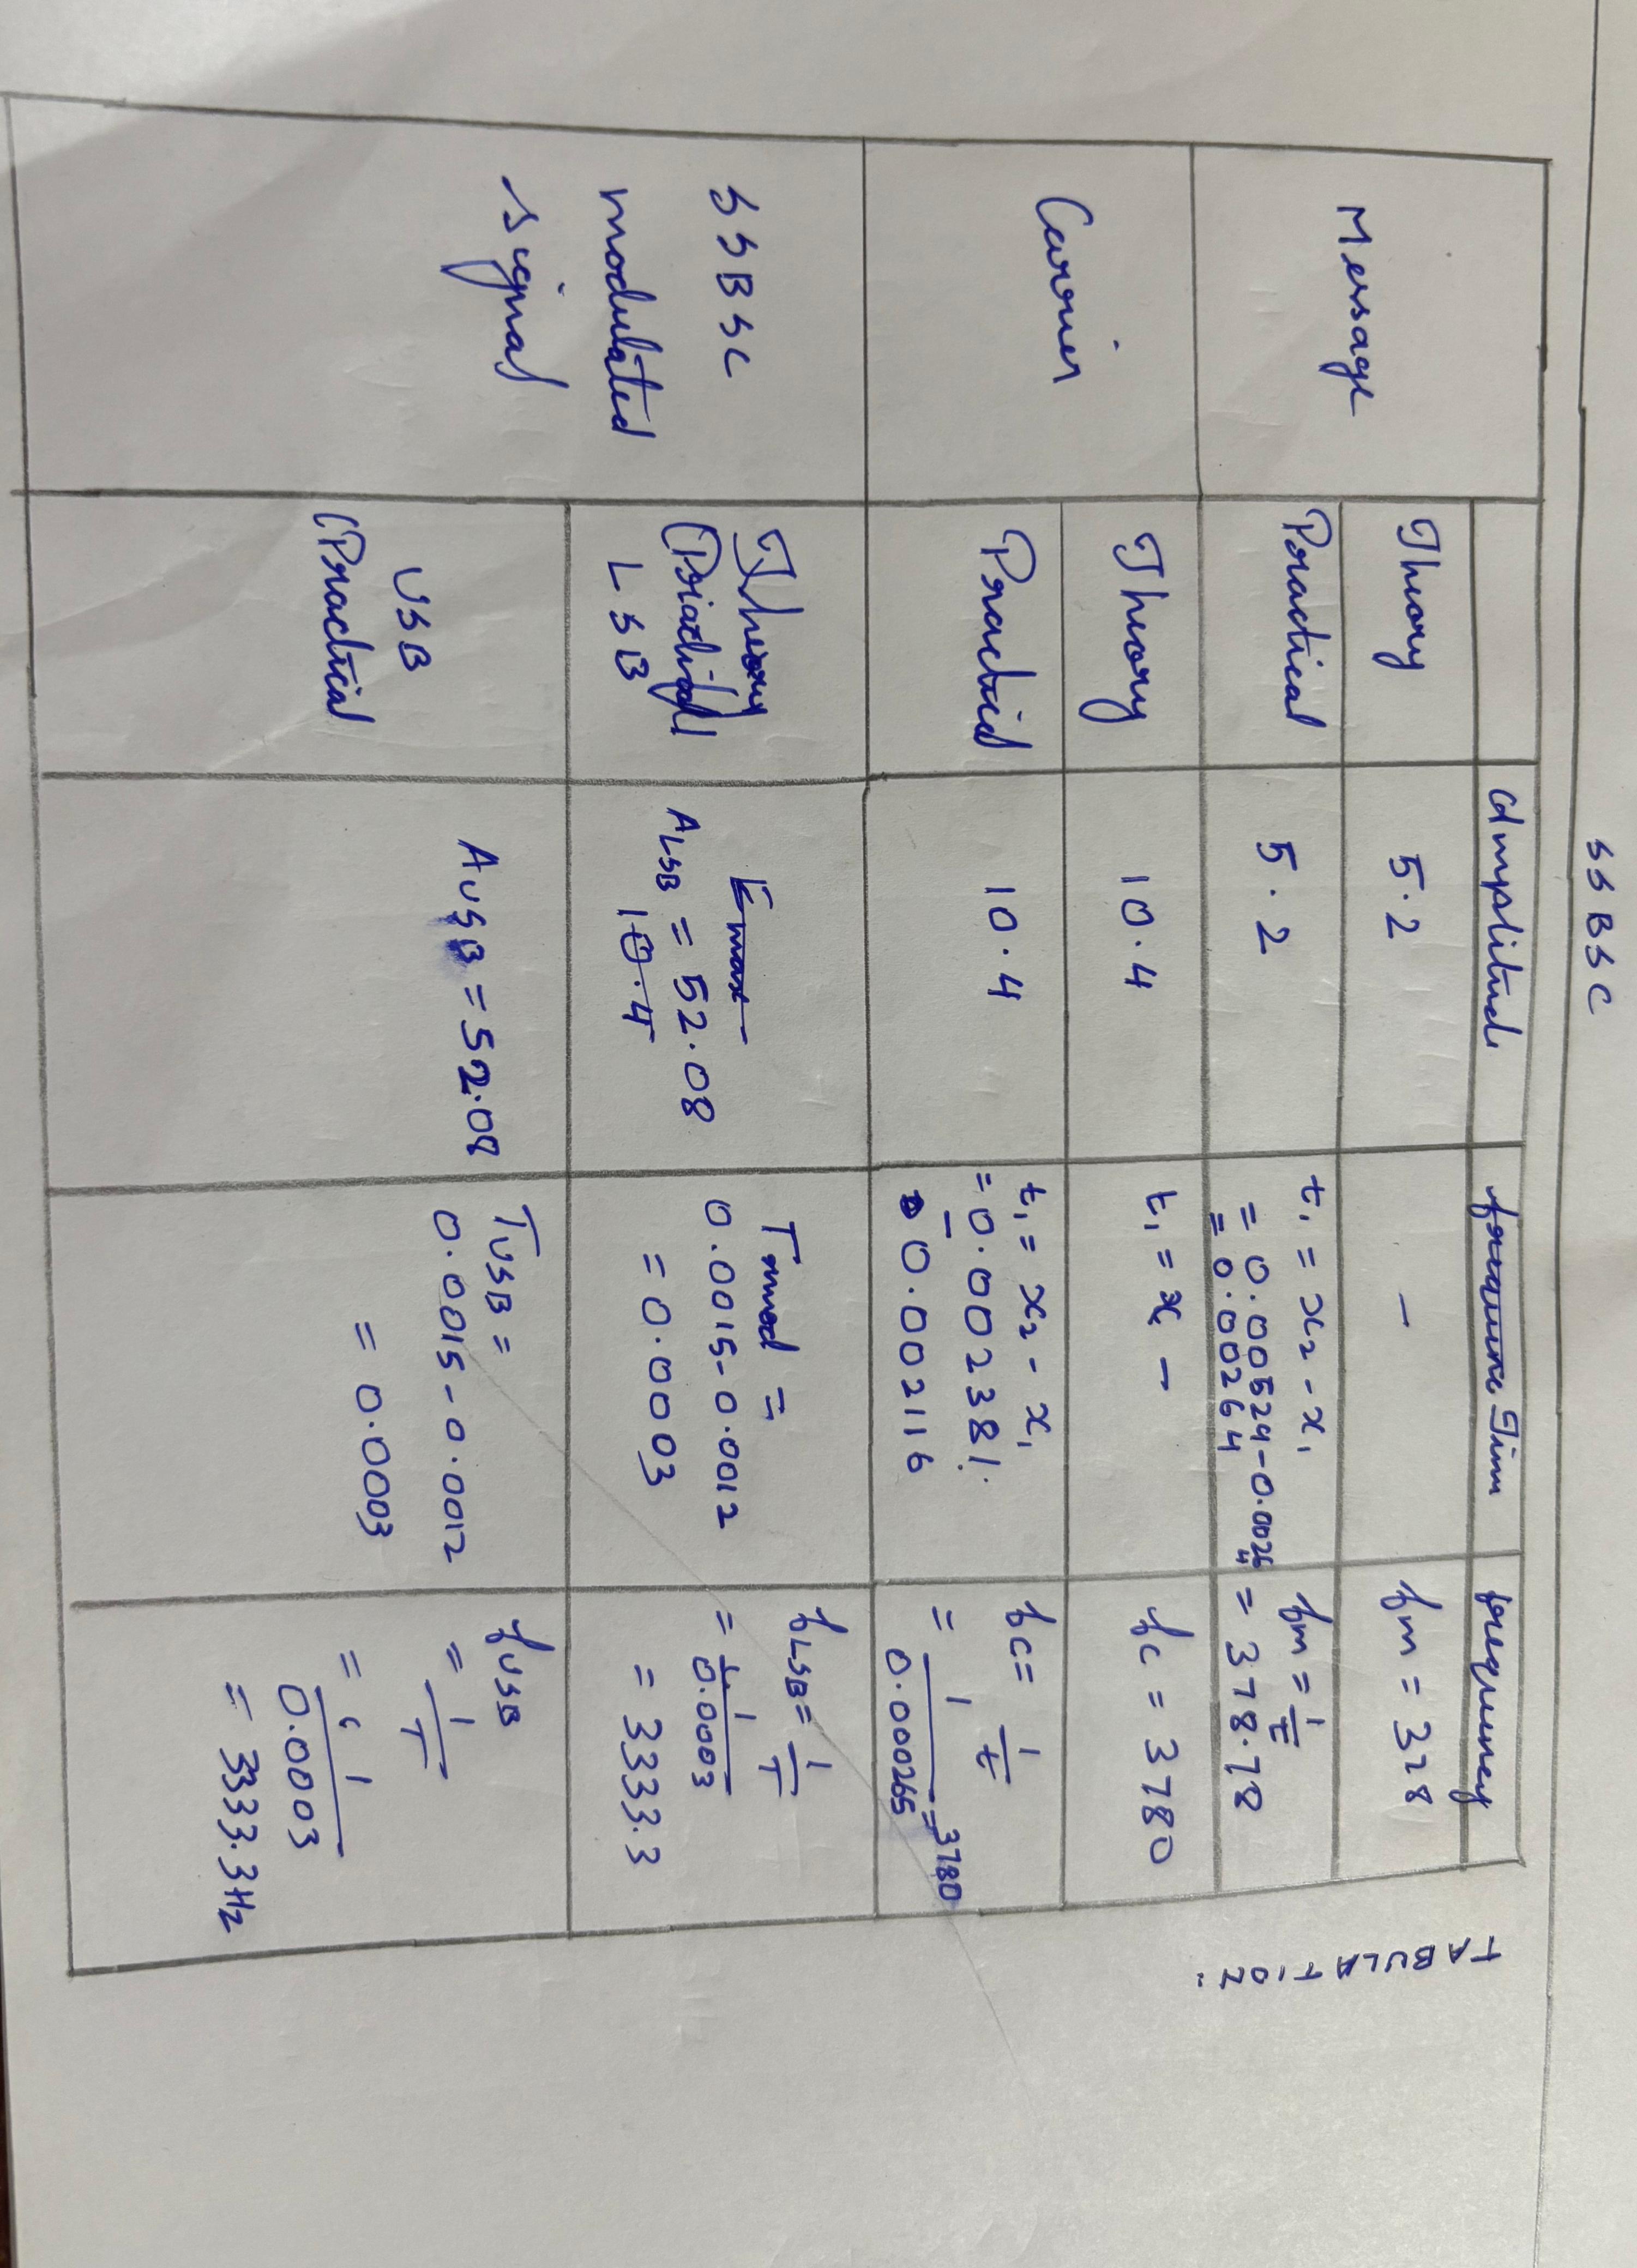 SSBSC
TABULATION:
Amplitude
Time
frequency
Message
Theory
5.2
-
fm = 378
Practical
5.2
t₁ = x₂ - x₁
= 0.00524-0.00264
= 0.00264
fm = 1/t
= 378.78
Carrier
Theory
10.4
t₁ = x -
fc = 3780
Practical
10.4
t₁ = x₂ - x₁
= 0.002381-
0.002116
fc = 1/t
= 1/0.000265 = 3780
SSBSC
modulated
signal
Theory
(Practical)
LSB
Emax
ALSB = 52.08
10.4
Tmod =
0.0015-0.0012
= 0.0003
fLSB = 1/T
= 1/0.0003
= 3333.3
USB
(Practical
AUSB = 52.08
TUSB =
0.0015-0.0012
= 0.0003
fUSB
= 1/T
= 1/0.0003
= 3333.3Hz